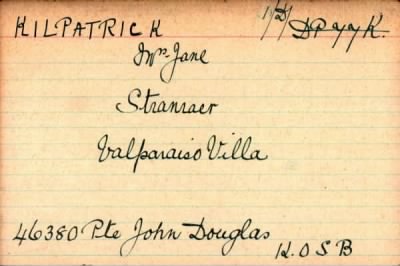 KILPATRICK
Mrs Jane
Stranraer
Valparaiso Villa
46380 Pte John Douglas
K.O S B